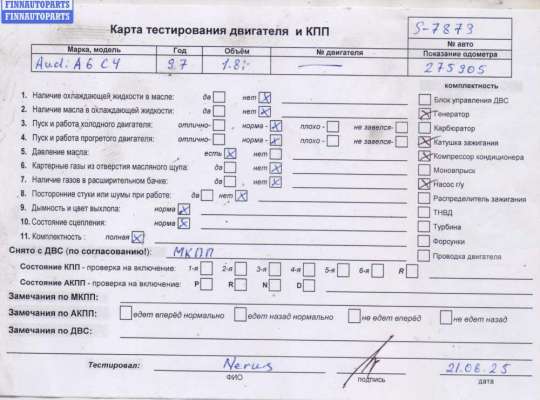 FINNAUTOPARTS
FINNAUTOPARTS
FINNAUTOPARTS
Карта тестирования двигателя и КПП
S-7873
№ авто
Марка, модель Год Объём № двигателя Показание одометра
Audi A6 C4 97 1.8i — 275905
комплектность
1. Наличие охлаждающей жидкости в масле: да нет X
Блок управления ДВС
2. Наличие масла в охлаждающей жидкости: да нет X
X Генератор
3. Пуск и работа холодного двигателя: отлично- норма - X плохо - не завелся-
Карбюратор
4. Пуск и работа прогретого двигателя: отлично- норма - X плохо - не завелся-
X Катушка зажигания
5. Давление масла: есть X нет
X Компрессор кондиционера
6. Картерные газы из отверстия масляного щупа: да нет X
Моновпрыск
7. Наличие газов в расширительном бачке: да нет X
X Насос г/у
8. Посторонние стуки или шумы при работе: да нет X
Распределитель зажигания
9. Дымность и цвет выхлопа: норма X
ТНВД
10. Состояние сцепления: норма X
Турбина
11. Комплектность : полная X
Форсунки
Снято с ДВС (по согласованию!): МКПП
Проводка двигателя
Состояние КПП - проверка на включение: 1-я 2-я 3-я 4-я 5-я 6-я R
Состояние АКПП - проверка на включение: P R N D
Замечания по МКПП:
Замечания по АКПП: едет вперёд нормально едет назад нормально не едет вперёд не едет назад
Замечания по ДВС:
Тестировал: Nerus 21.06.25
ФИО подпись дата